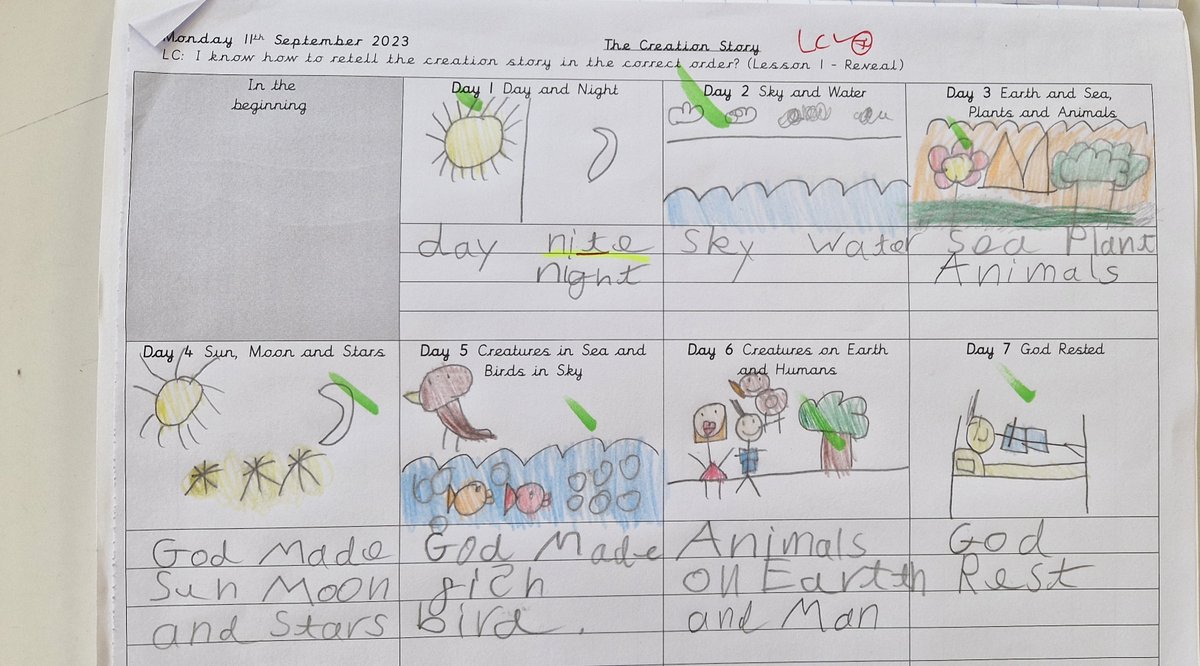 Monday 11th September 2023
The Creation Story
LC
LC: I know how to retell the creation story in the correct order? (Lesson 1 - Reveal)
In the
beginning
Day 1 Day and Night
day nite
night
Day 2 Sky and Water
Sky Water
Day 3 Earth and Sea,
Plants and Animals
Sea Plant
Animals
Day 4 Sun, Moon and Stars
God Made
Sun Moon
and Stars
Day 5 Creatures in Sea and
Birds in Sky
God Made
fich
bird.
Day 6 Creatures on Earth
and Humans
Animals
on Eartth
and Man
Day 7 God Rested
God
Rest